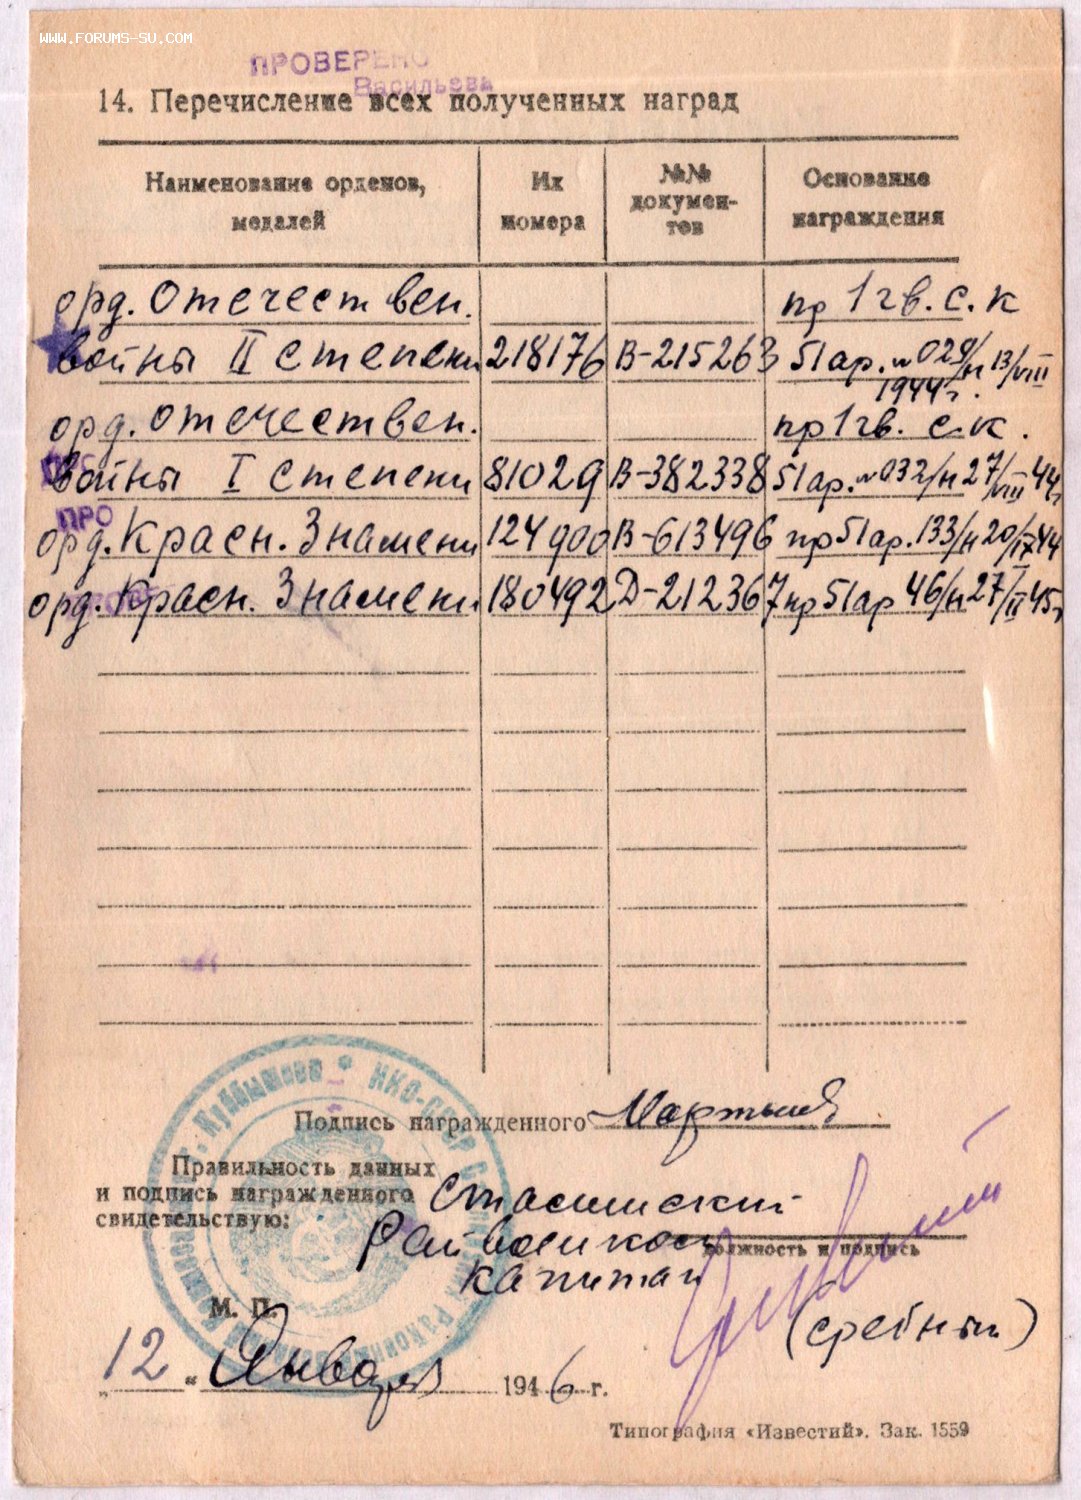 WWW.FORUMS-SU.COM
ПРОВЕРЕНО
Васильева
14. Перечисление всех полученных наград
Наименование орденов, медалей
Их номера
№№ документов
Основание награждения
орд. Отечествен. пр 1 гв. с. к
войны II степени 218176 В-215263 51 ар. № 029/н 13/VIII
1944 г.
орд. отечествен. пр 1 гв. с. к.
войны I степени 81029 В-382338 51 ар. № 032/н 27/VIII 44 г
ПРО
орд. Красн. Знамени 124900 В-613496 пр 51 ар. 133/н 20/IX 44
орд. Красн. Знамени 180492 Д-212367 пр 51 ар 46/н 27/II 45 г
Подпись награжденного
Правильность данных
и подпись награженного
свидетельствую:
Райвоенком
должность и подпись
капитан
М. П.
„12“ Января 1946 г.
Типография «Известий». Зак. 1559